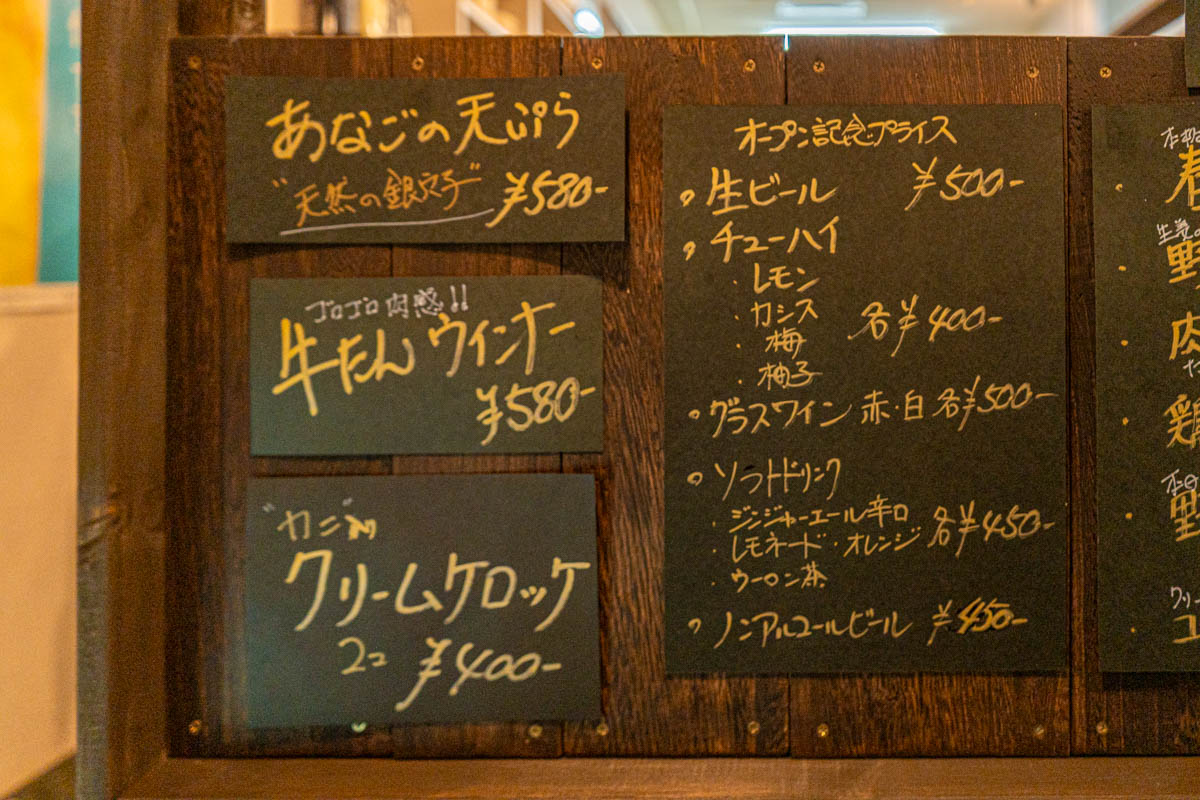 あなごの天ぷら
"天然の銀穴子" ¥580-
ゴロゴロ肉感!!
牛たんウインナー
¥580-
"カニ"入り
クリームケロッケ
2コ ¥400-
オープン記念プライス
生ビール ¥500-
チューハイ
・レモン
・カシス
・梅 各¥400-
・柚子
グラスワイン 赤・白 各¥500-
ソフトドリンク
・ジンジャーエール辛口
・レモネード・オレンジ 各¥450-
・ウーロン茶
ノンアルコールビール ¥450-
春
生姜の
野
肉
鶏
野
クリー
コ